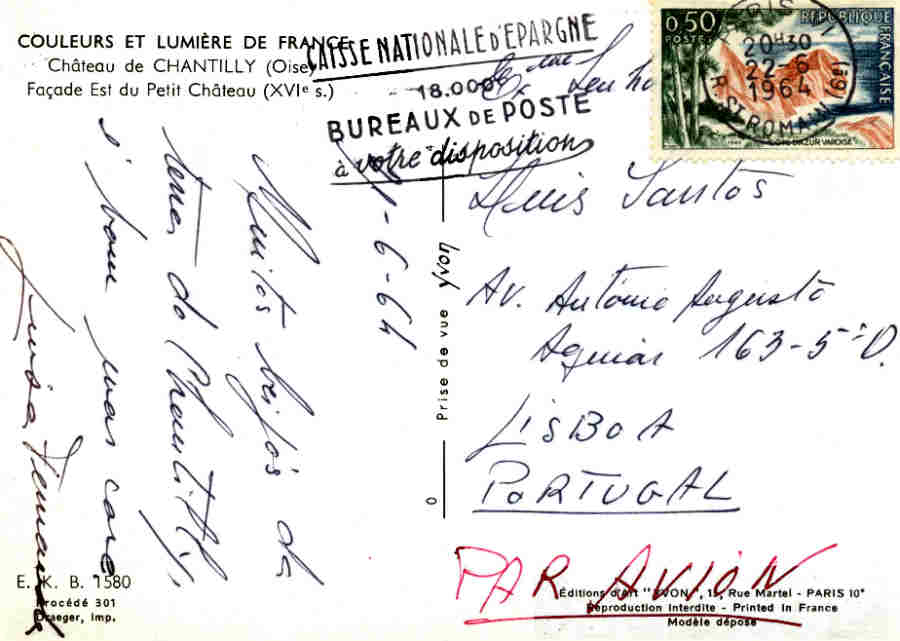 COULEURS ET LUMIÈRE DE FRANCE
Château de CHANTILLY (Oise)
Façade Est du Petit Château (XVIe s.)
CAISSE NATIONALE D'EPARGNE
18.000
BUREAUX DE POSTE
à votre disposition
0,50
POSTES
REPUBLIQUE FRANÇAISE
COTE D'AZUR VAROISE
PARIS
20H30
22-6
1964
R. ST ROMAIN (6E)
-6-64
Muitos beijos da
terra do Chantilly,
é bom mas caro
Luisa
Exma
Luis Santos
Av. António Augusto
Aguiar 163-5º D.
LISBOA
PORTUGAL
PAR AVION
Prise de vue Yvon
E. K. B. 1580
Procédé 301
Draeger, Imp.
Éditions d'Art "YVON", 15, Rue Martel - PARIS 10e
Reproduction Interdite - Printed in France
Modèle déposé